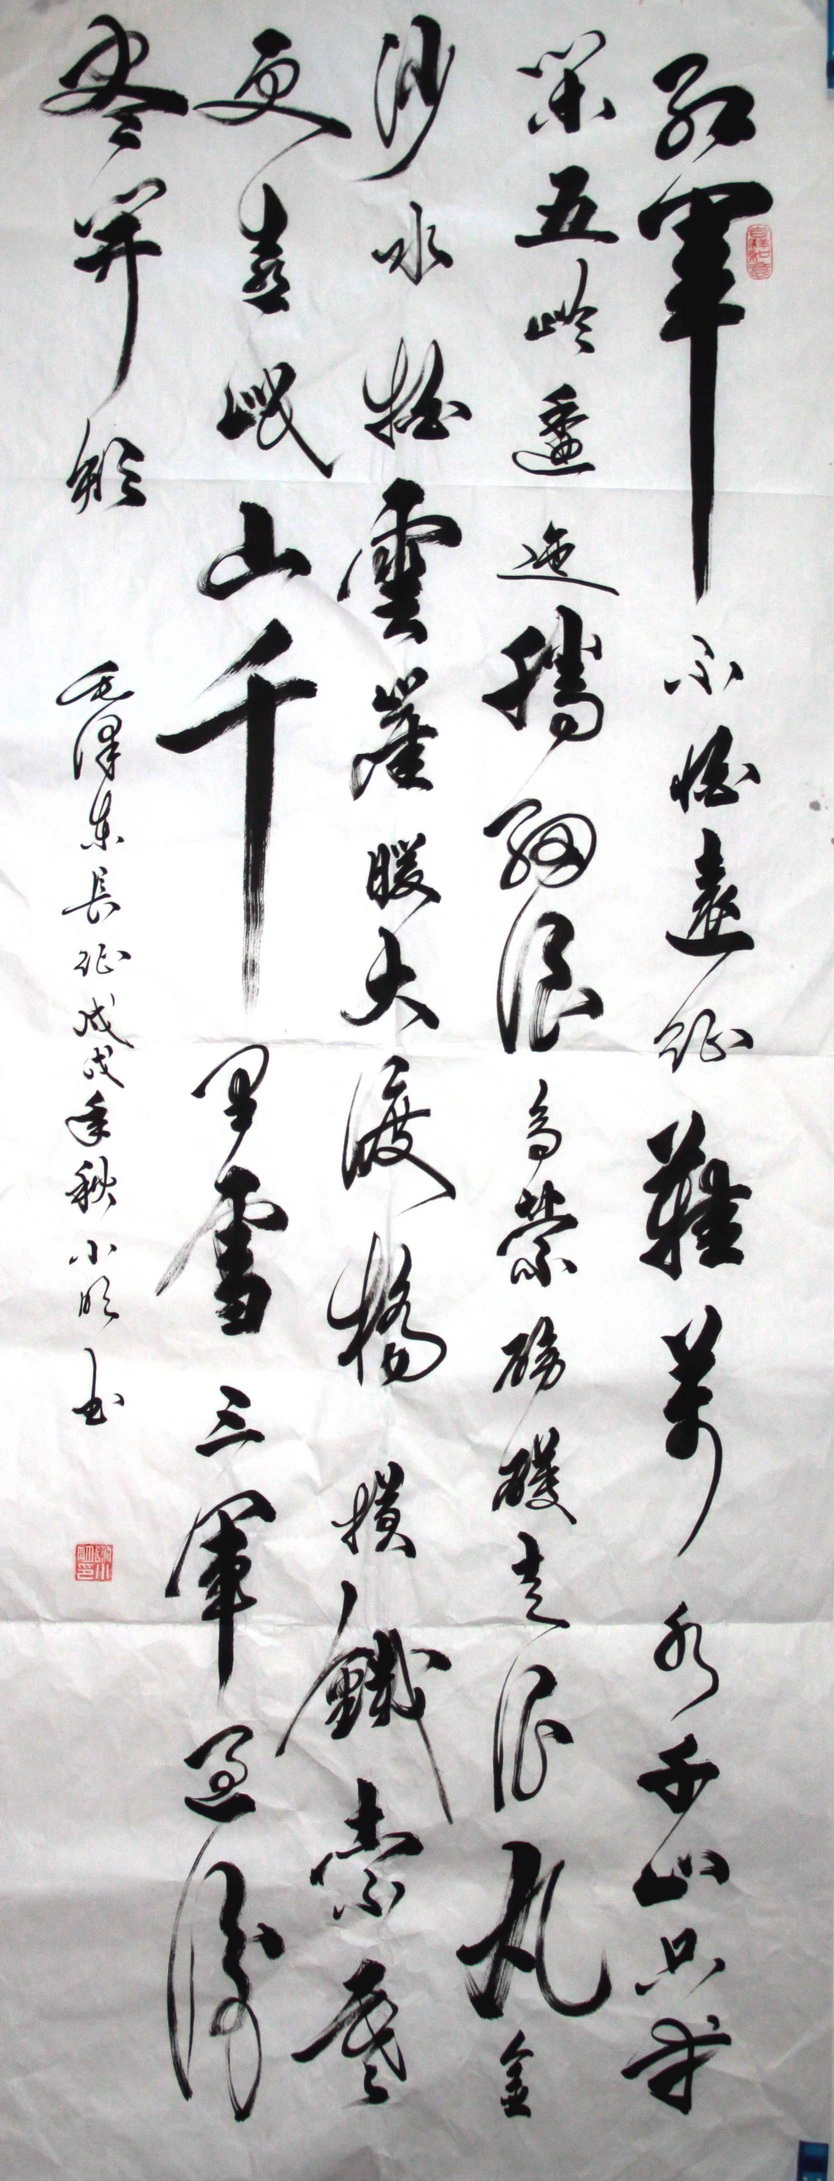 紅軍不怕遠征難萬水千山只等
閑五嶺逶迤騰細浪烏蒙磅礴走泥丸金
沙水拍雲崖暖大渡橋橫鐵索寒
更喜岷山千里雪三軍過後
盡開顏
毛澤東長征戊戌年秋小明书
吉祥如意